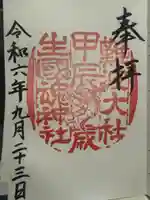 奉拝
難波大社
生國魂神社
令和六年九月二十三日